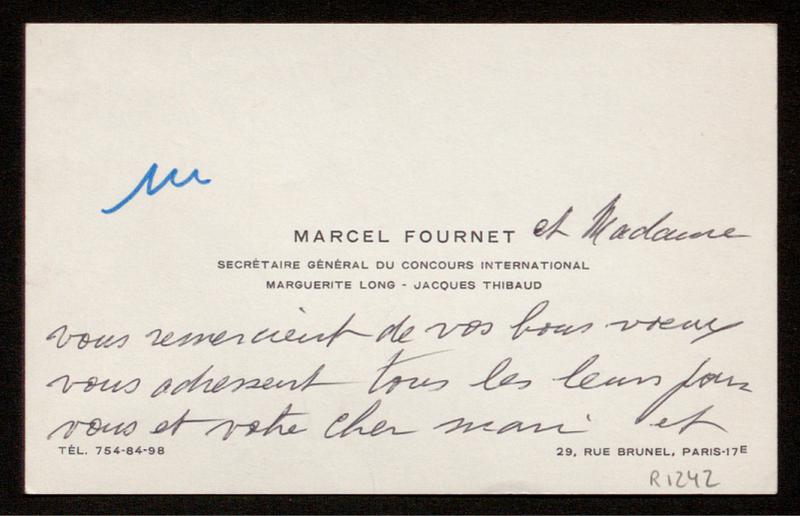 MARCEL FOURNET et Madame
SECRÉTAIRE GÉNÉRAL DU CONCOURS INTERNATIONAL
MARGUERITE LONG - JACQUES THIBAUD
vous remercient de vos bons voeux
vous adressent tous les leurs pour
vous et votre cher mari et
TÉL. 754-84-98
29, RUE BRUNEL, PARIS-17E
R1242